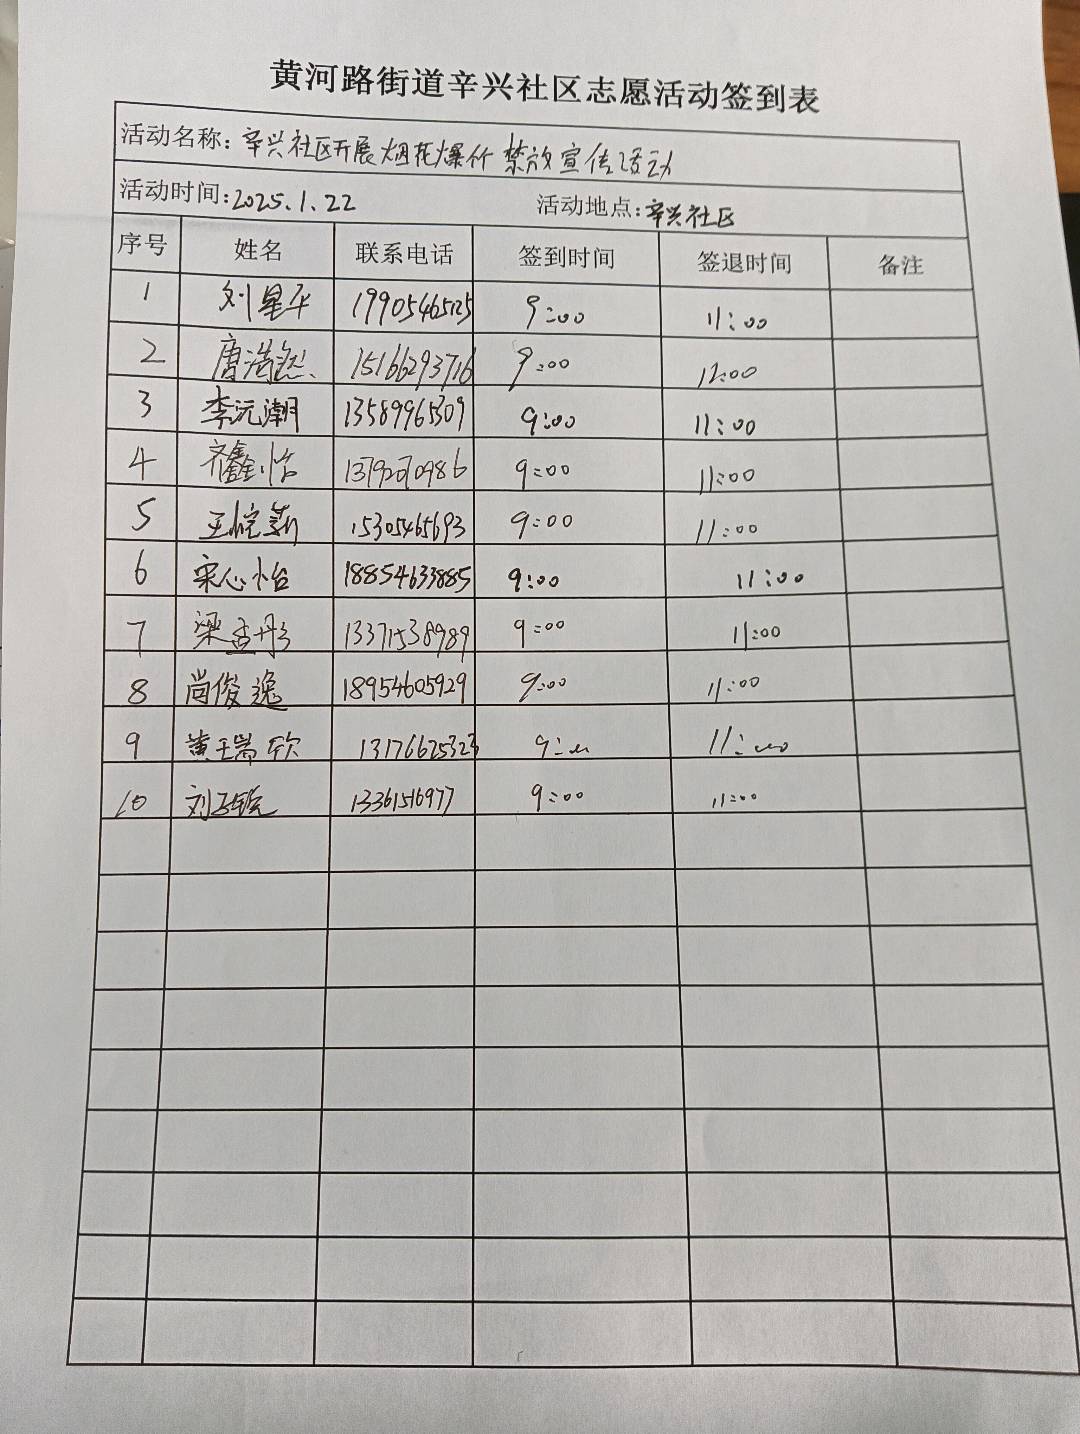 黄河路街道辛兴社区志愿活动签到表
活动名称：辛兴社区开展烟花爆竹禁放宣传活动
活动时间：2025.1.22 活动地点：辛兴社区
序号 姓名 联系电话 签到时间 签退时间 备注
1 刘星平 19905465125 9:00 11:00
2 唐浩然 15166293716 9:00 12:00
3 李沅潮 13589965309 9:00 11:00
4 齐鑫怡 9:00 11:00
5 15305465693 9:00 11:00
6 宋心怡 18854633885 9:00 11:00
7 梁孟彤 13371538989 9:00 11:00
8 尚俊逸 18954605929 9:00 11:00
9 黄瑞欣 13176625323 9:00 11:00
10 13361516977 9:00 11:00